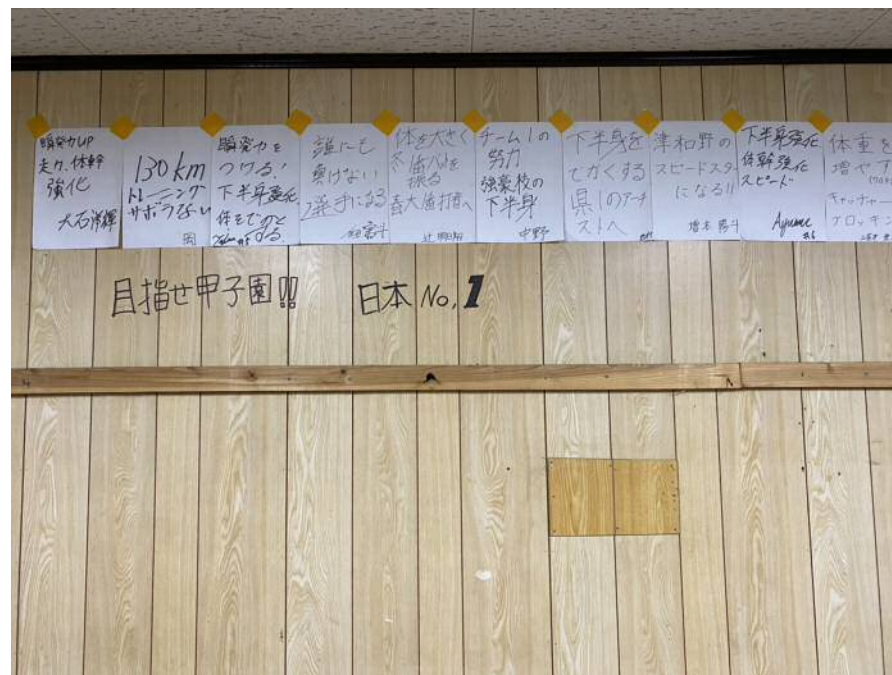 瞬発力UP
走力、体幹
強化
大石洋輝
130km
トレーニング
サボらない
岡
瞬発力を
つける!
下半身強化
体をでかく
する
誰にも
負けない
選手になる
体を大きく
冬
振る
春
チーム1の
努力
強豪校の
下半身
中野
下半身を
でかくする
県1のアーチ
ストへ
津和野の
スピードスター
になる!!
増本
下半身強化
体幹強化
スピード
Ayumu
#6
体重を
増やす
キャッチャー
ブロッキン
目指せ甲子園!!
日本 No,1